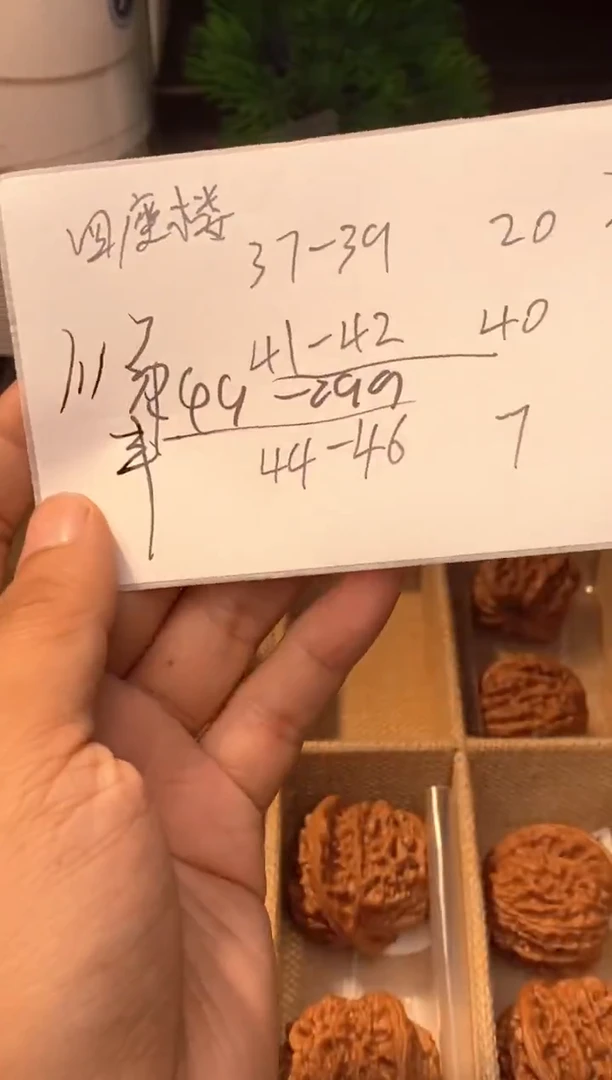 四座楼 37-39 20
41-42 40
99 -299
44-46 7